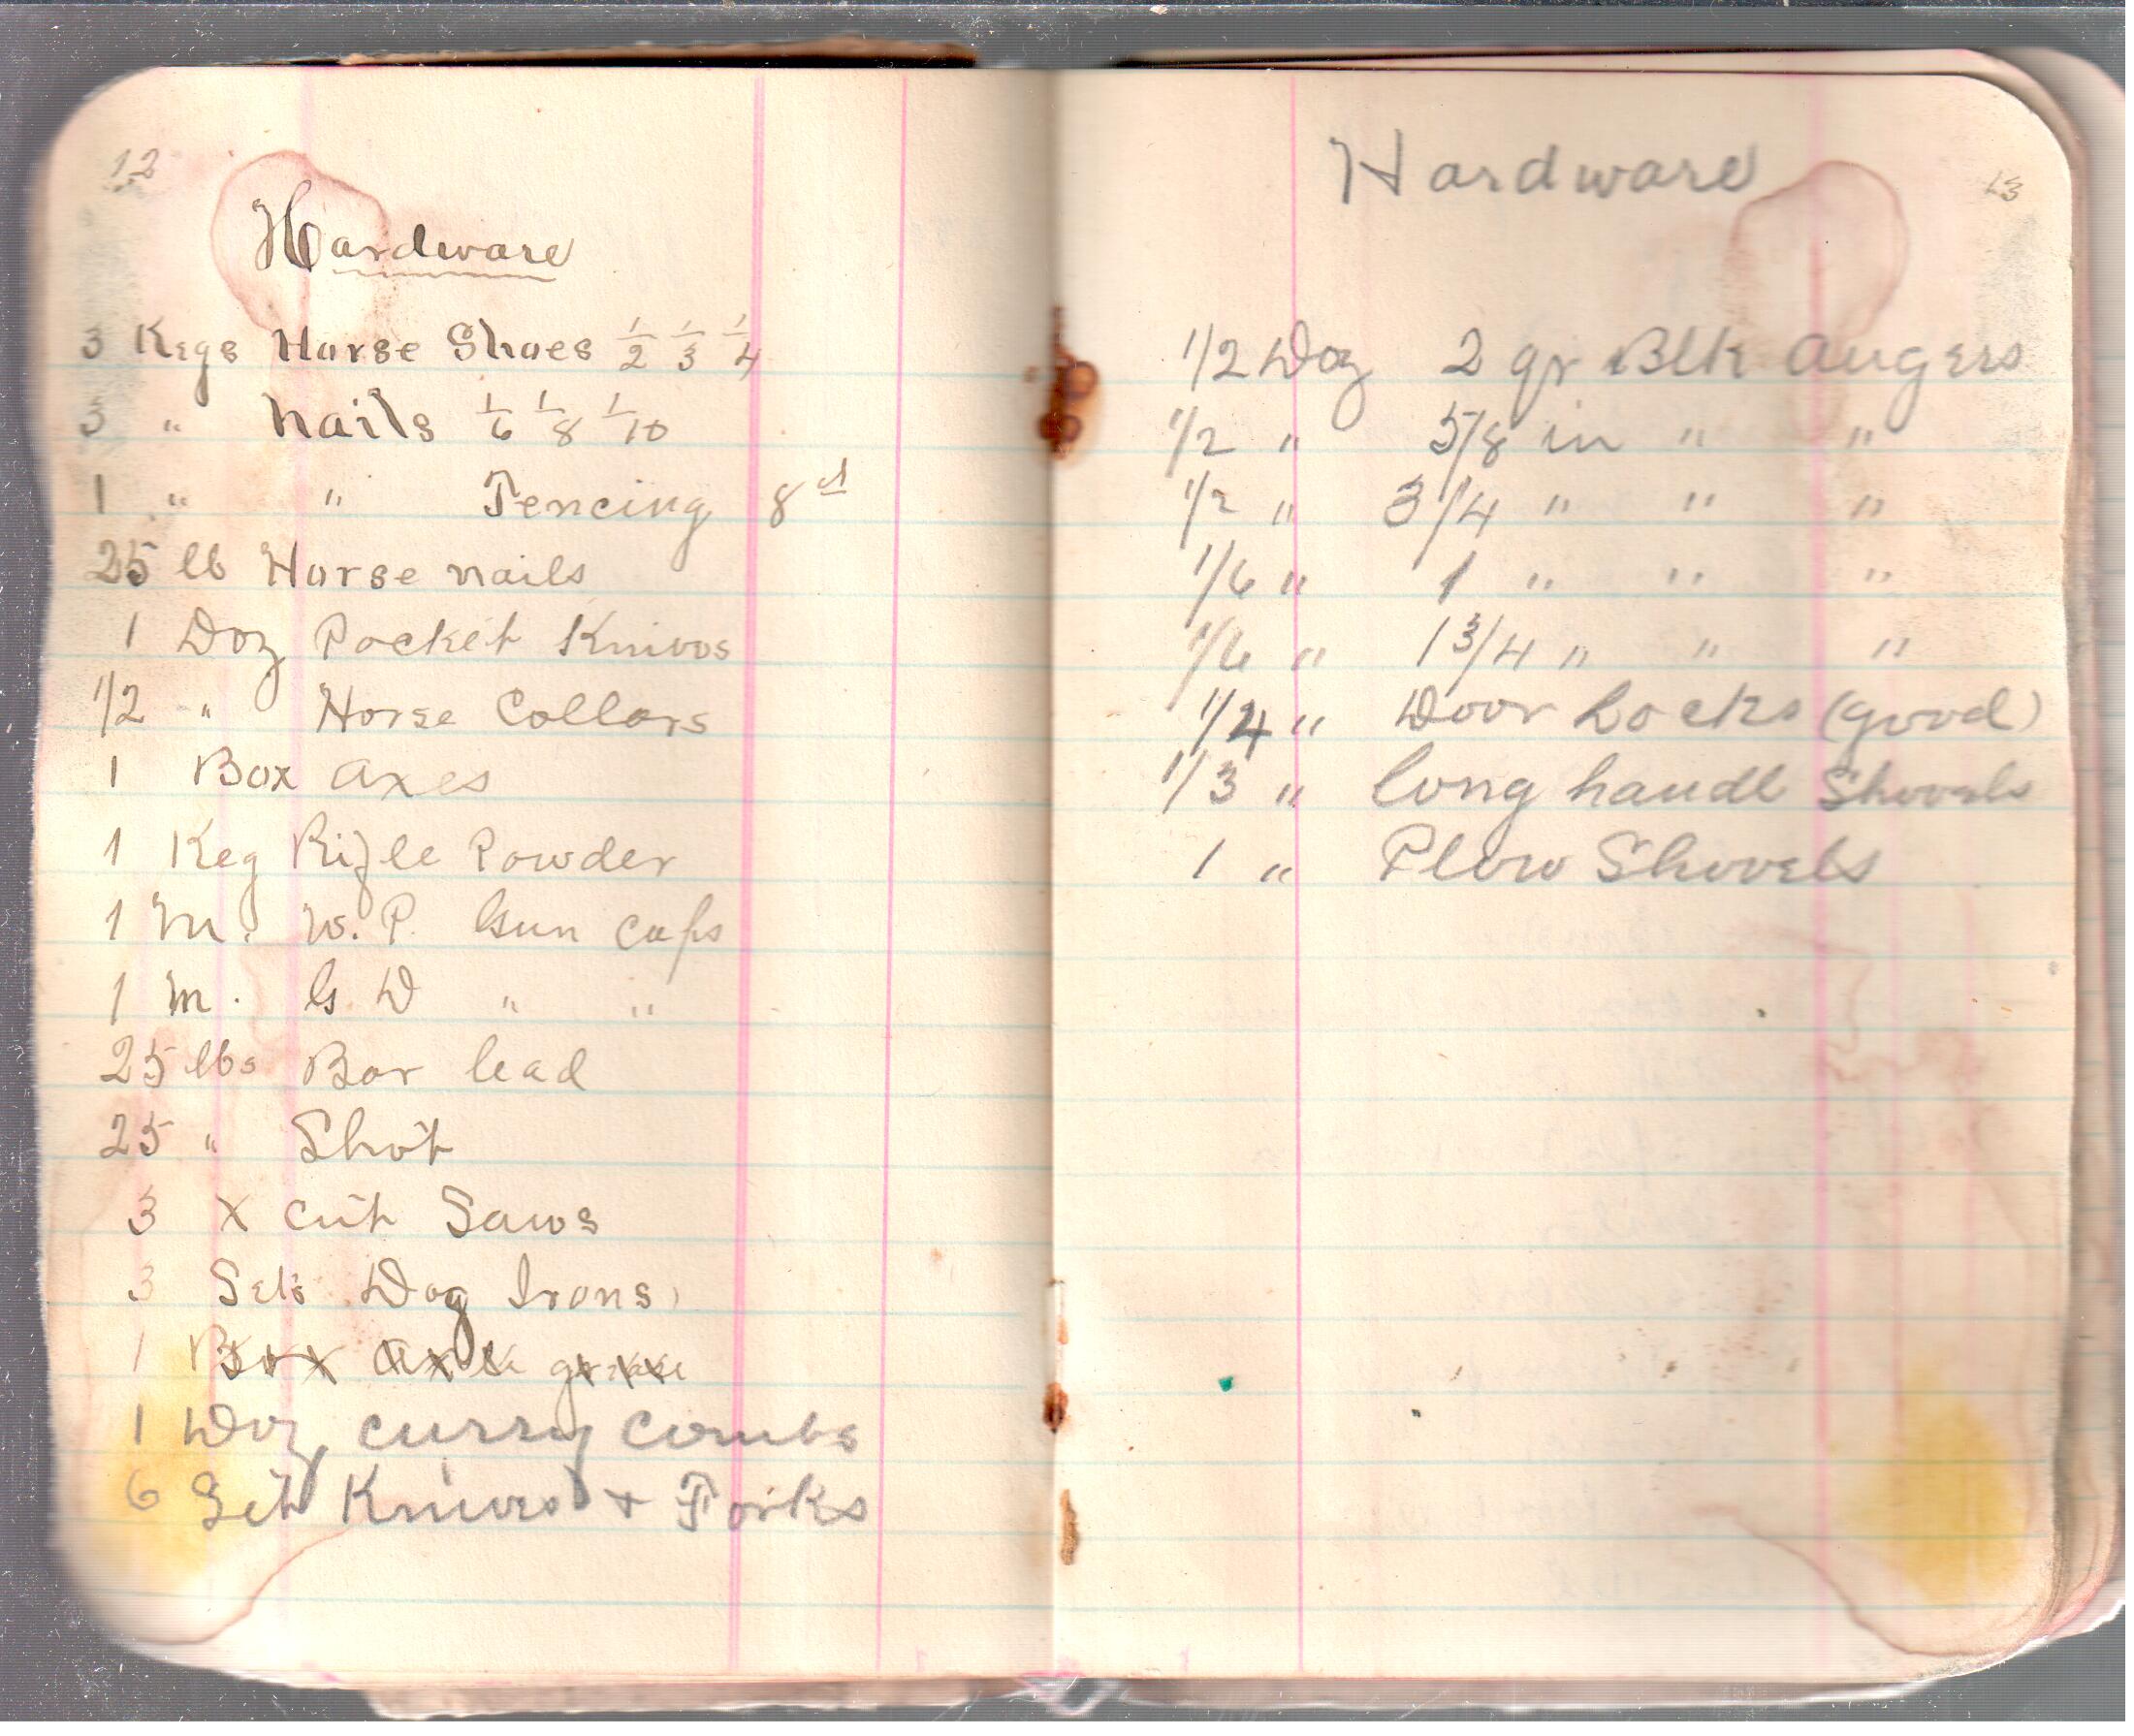 12
Hardware
3 Kegs Horse Shoes 1/2 1/3 1/4
3 " Nails 1/6 1/8 1/10
1 " " Fencing 8 d
25 lb Horse nails
1 Doz Pocket Knives
1/2 " Horse Collars
1 Box axes
1 Keg Rifle Powder
1 M. W. P. Gun Caps
1 M. G. D " "
25 lbs Bar lead
25 " Shot
3 X cut Saws
3 Sets Dog Irons
1 Box axle grease
1 Doz curry Combs
6 Set Knives + Forks
13
Hardware
1/2 Doz 2 qr Blk augers
1/2 " 5/8 in " "
1/2 " 3/4 " " "
1/6 " 1 " " "
1/6 " 1 3/4 " " "
1/4 " Door Locks (good)
1/3 " long handl Shovels
1 " Plow Shovels